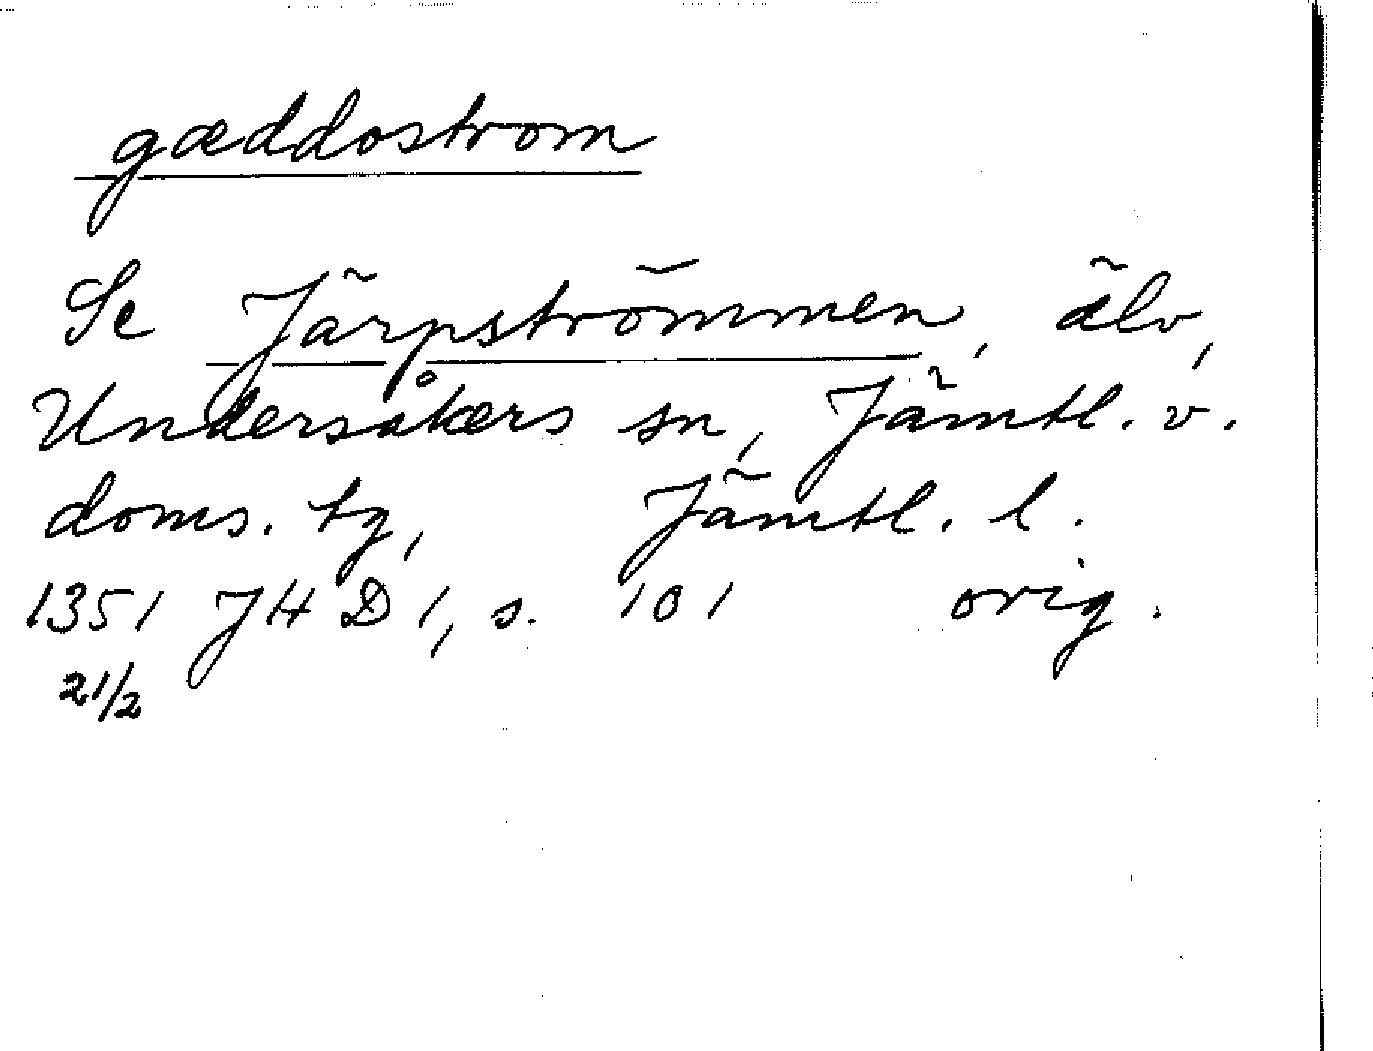 gæddostrom
Se Järpströmmen, älv,
Undersåkers sn, Jämtl. v.
doms. tg, Jämtl. l.
1351 JHD 1, s. 101 orig.
21/2